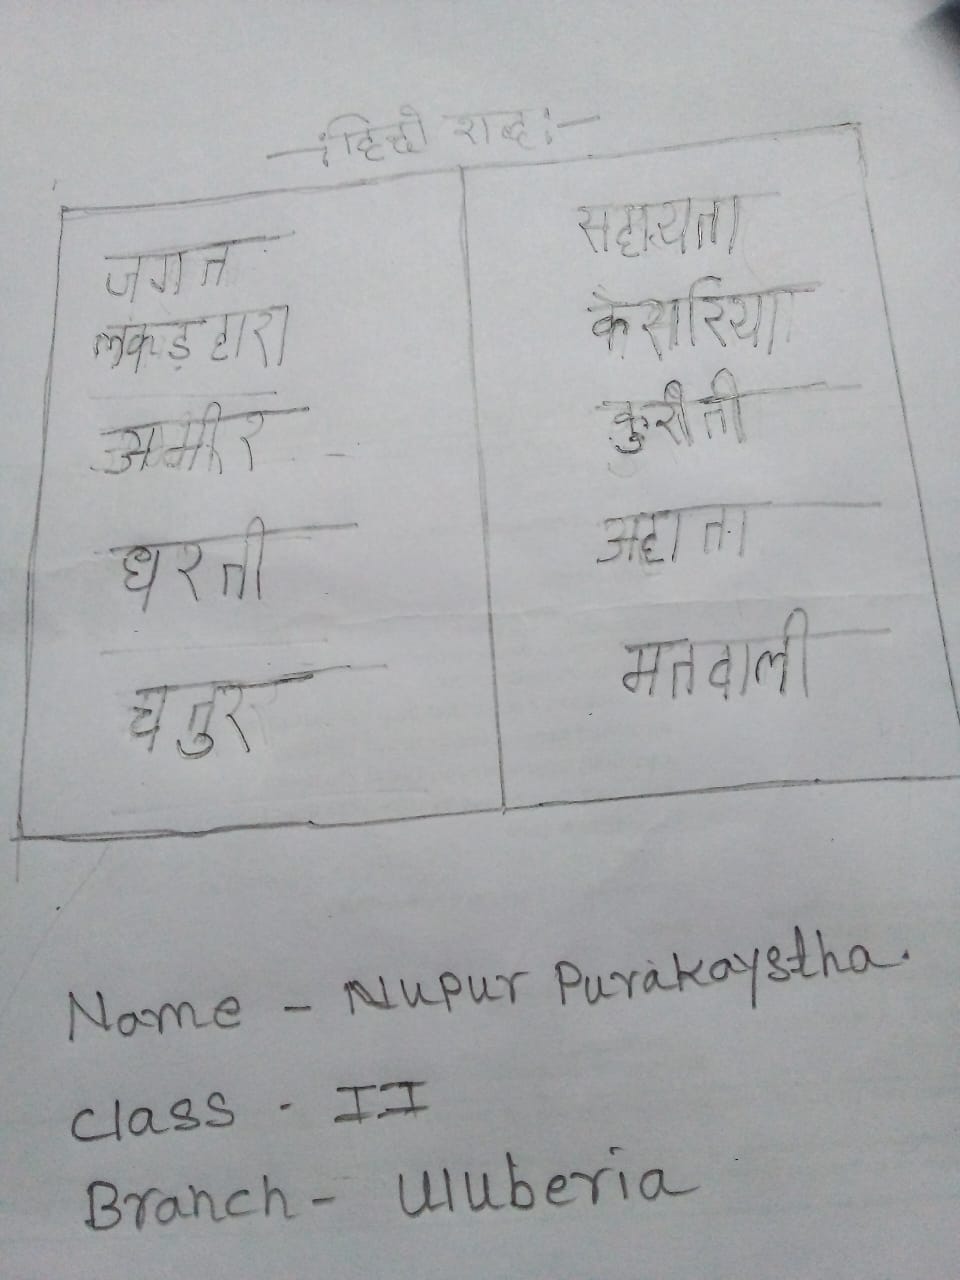 -:हिन्दी शब्द:-
जगत
लकड़हारा
अमीर
धरती
चतुर
सहायता
केसरिया
कुरीती
अहाता
मतवाली
Name - Nupur Purakaystha.
Class - II
Branch - Uluberia